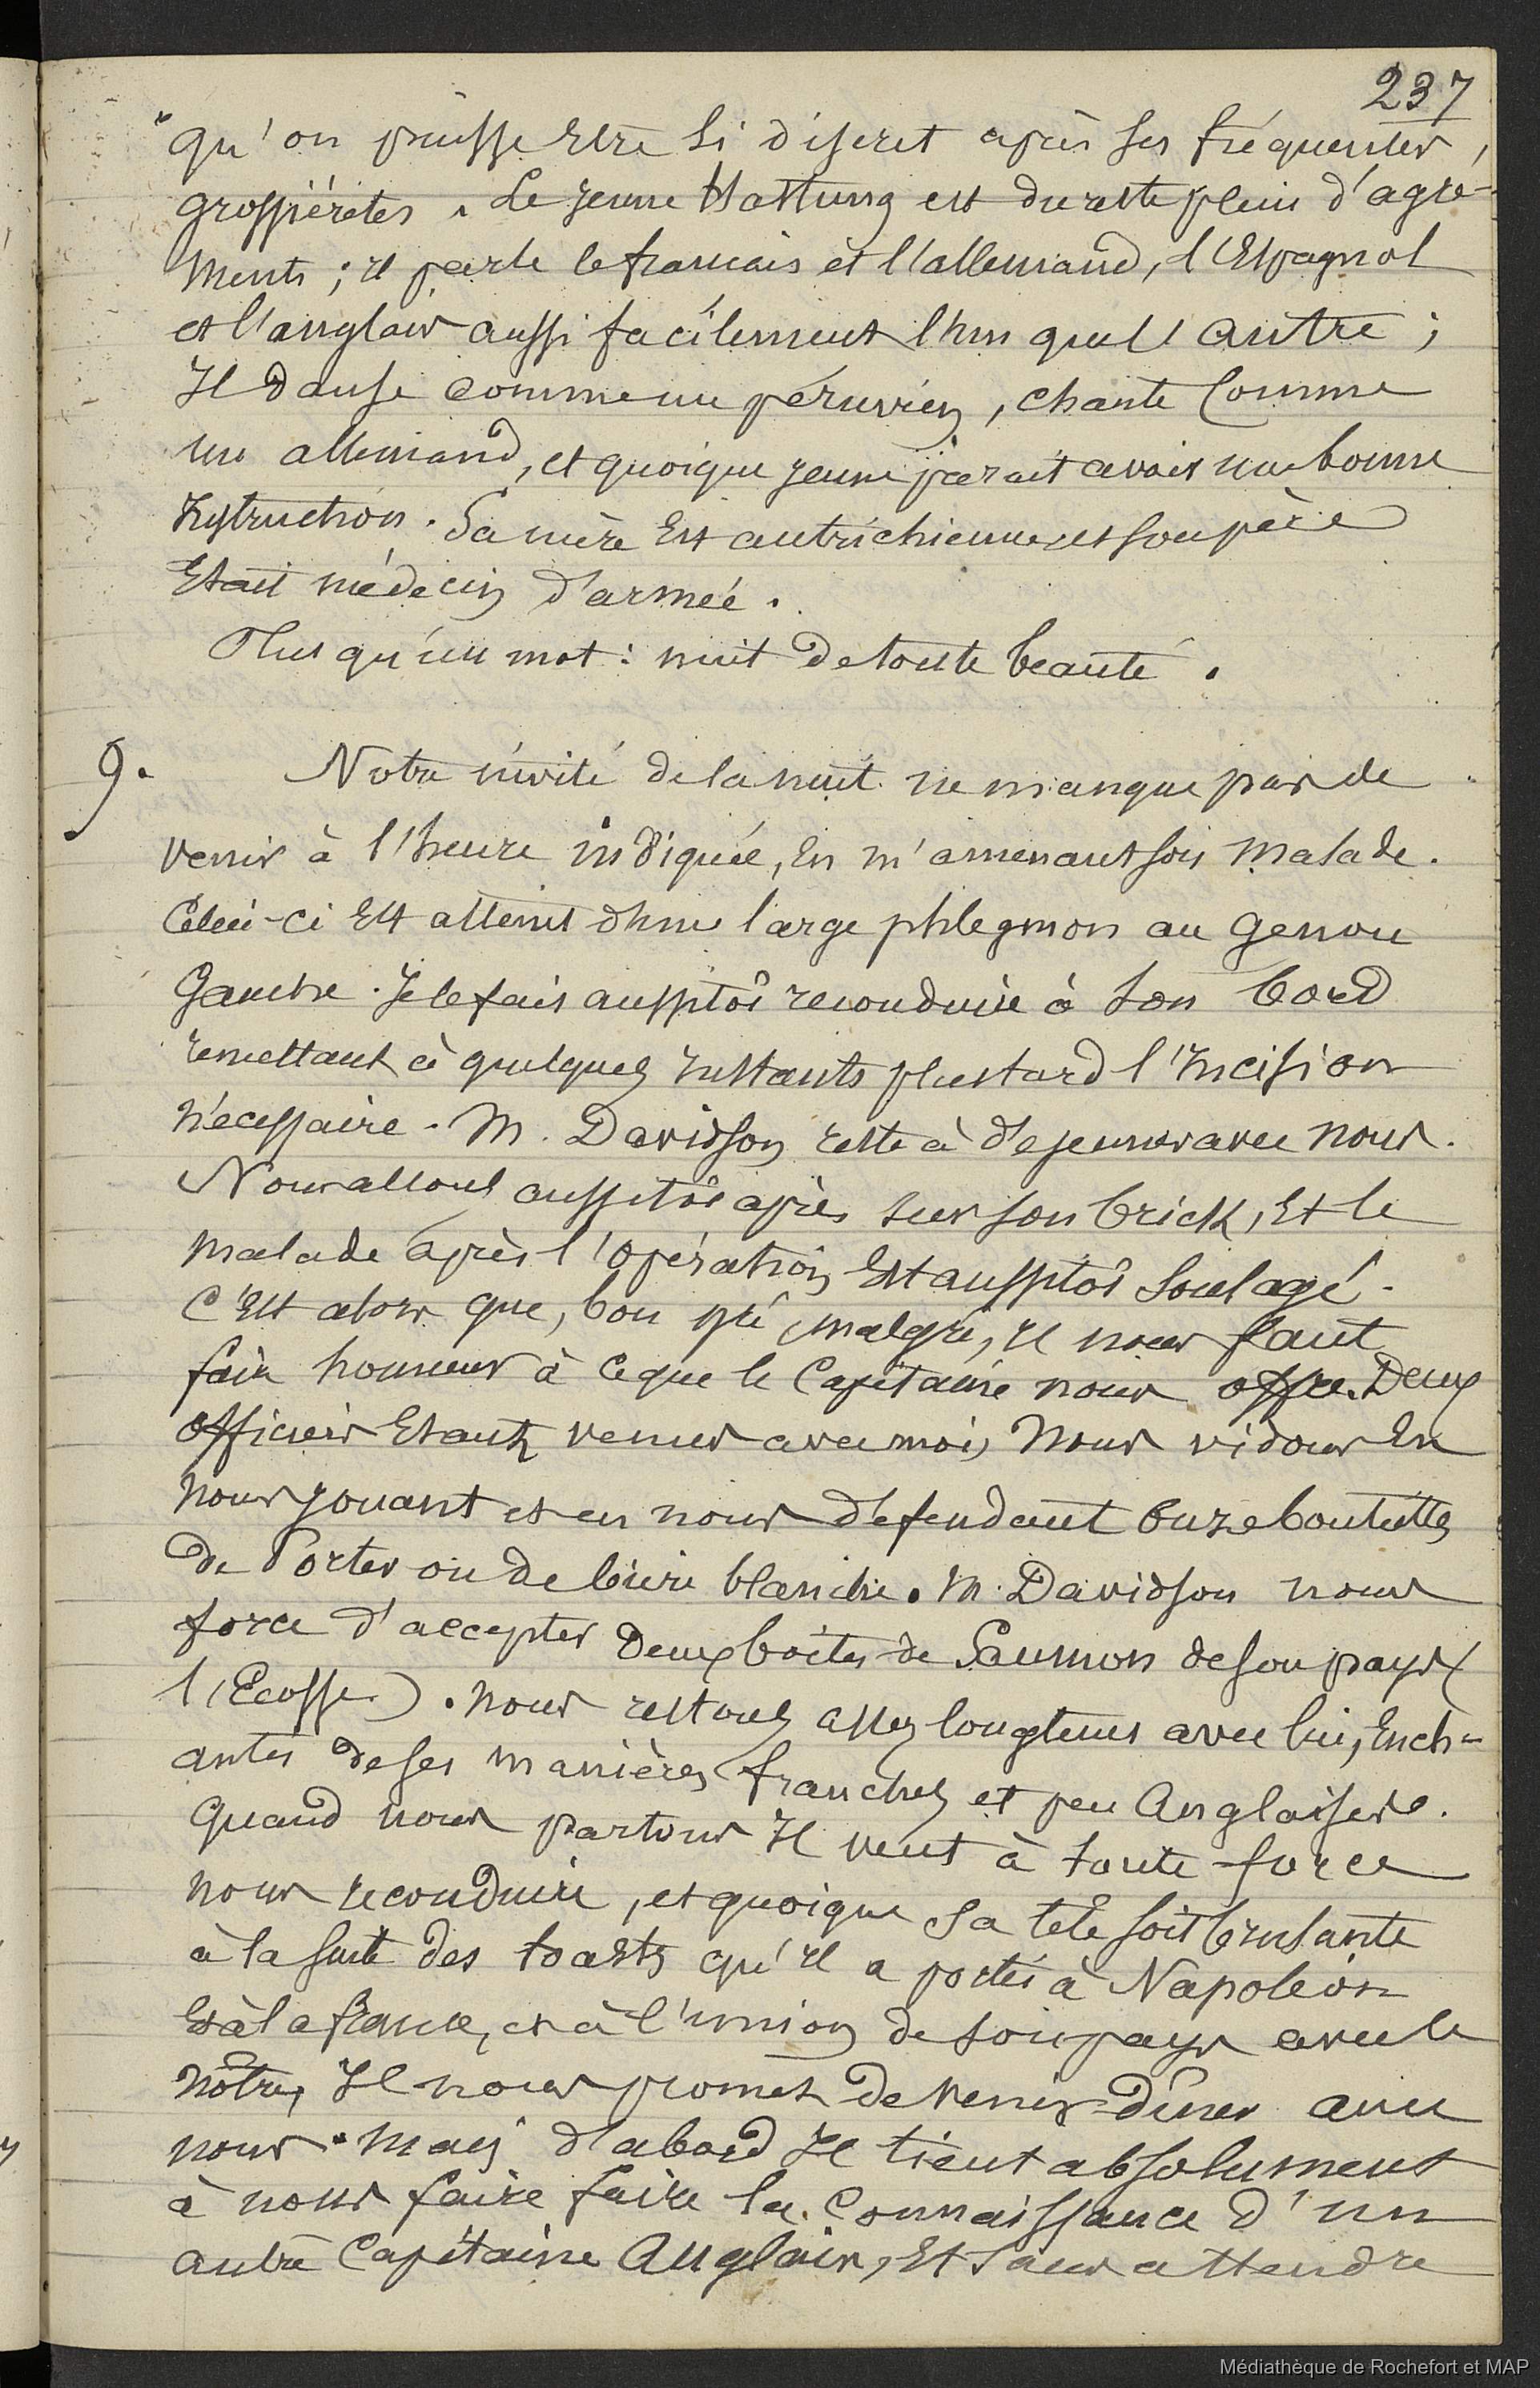 237
"qu'on puisse être si discret après ses fréquentes
grossièretes. Le jeune Hastung est du reste plein d'agré-
ments ; il parle le français et l'allemand, l'Espagnol
et l'anglais aussi facilement l'un que l'autre ;
Il danse comme un péruvien, chante comme
un allemand, et quoique jeune parait avoir une bonne
Instruction. Sa mère Est autrichienne, et son père
Etait médecin d'armée.
Plus qu'un mot : nuit de toute beauté.
9. Notre invité de la nuit ne manque pas de
venir à l'heure indiquée, En m'amenant son malade.
Celui-ci Est atteint d'une large phlegmon au genou
Gauche. Je le fais aussitôt reconduire à son bord
remettant à quelques Instants plus tard l'Incision
nécessaire. M. Davidson reste à déjeuner avec nous.
Nous allons aussitôt après sur son brick, Et le
malade après l'opération Est aussitôt soulagé.
C'Est alors que, bon gré, malgré, il nous faut
faire honneur à ce que le Capitaine nous offre. Deux
officiers Etant venus avec moi, Nous vidons En
nous jouant et en nous défendant Onze bouteilles
de Porter ou de bière blanche. M. Davidson nous
force d'accepter Deux boites de Saumon de son pays (
l'Ecosse). Nous restons assez longtems avec lui, Ench-
antés de ses manières franches et peu Anglaises.
Quand nous partons Il veut à toute force
nous reconduire, et quoique sa tête soit brulante
à la suite des toasts qu'Il a portés à Napoléon
Et à la france, et à l'union de son pays avec le
nôtre, Il nous promet de venir dîner avec
nous. Mais d'abord Il tient absolument
à nous faire faire la connaissance d'un
autre Capitaine Anglais, Et sans attendre
Médiathèque de Rochefort et MAP